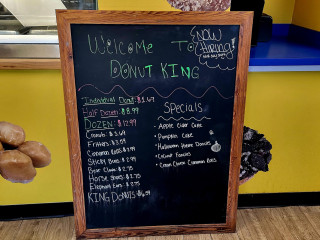 Welcome To
DONUT KING
NOW
Hiring!
Individual Donut: $1.69
Half Dozen: $8.99
Dozen: $12.99
Cronuts: $3.69
Fritters: $3.99
Cinnamon Rolls: $2.99
Sticky Buns: $2.99
Bear Claws: $2.75
Horse Shoes: $2.75
Elephant Ears: $2.75
KING DONUTS: $6.99
Specials
Apple Cider Cake
Pumpkin Cake
Halloween Theme Donuts
Cream Cheese Cinnamon Rolls